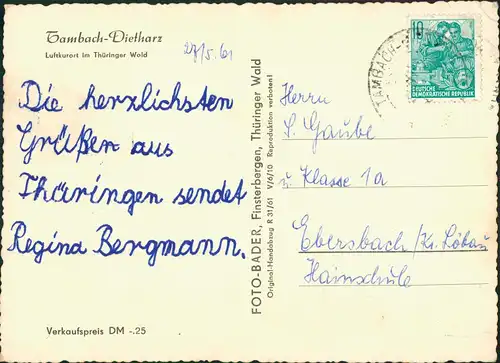 Tambach-Dietharz
Luftkurort im Thüringer Wald
27/5.61
Die herzlichsten
Grüßen aus
Thüringen sendet
Regina Bergmann.
Verkaufspreis DM -.25
FOTO-BADER, Finsterbergen, Thüringer Wald
Original-Handabzug R 31/61 V/6/10 Reproduktion verboten!
10
DEUTSCHE
DEMOKRATISCHE REPUBLIK
TAMBACH-
Herrn
S. Gaube
u. Klasse 1a
Ebersbach/Kr. Löbau
Hainschule